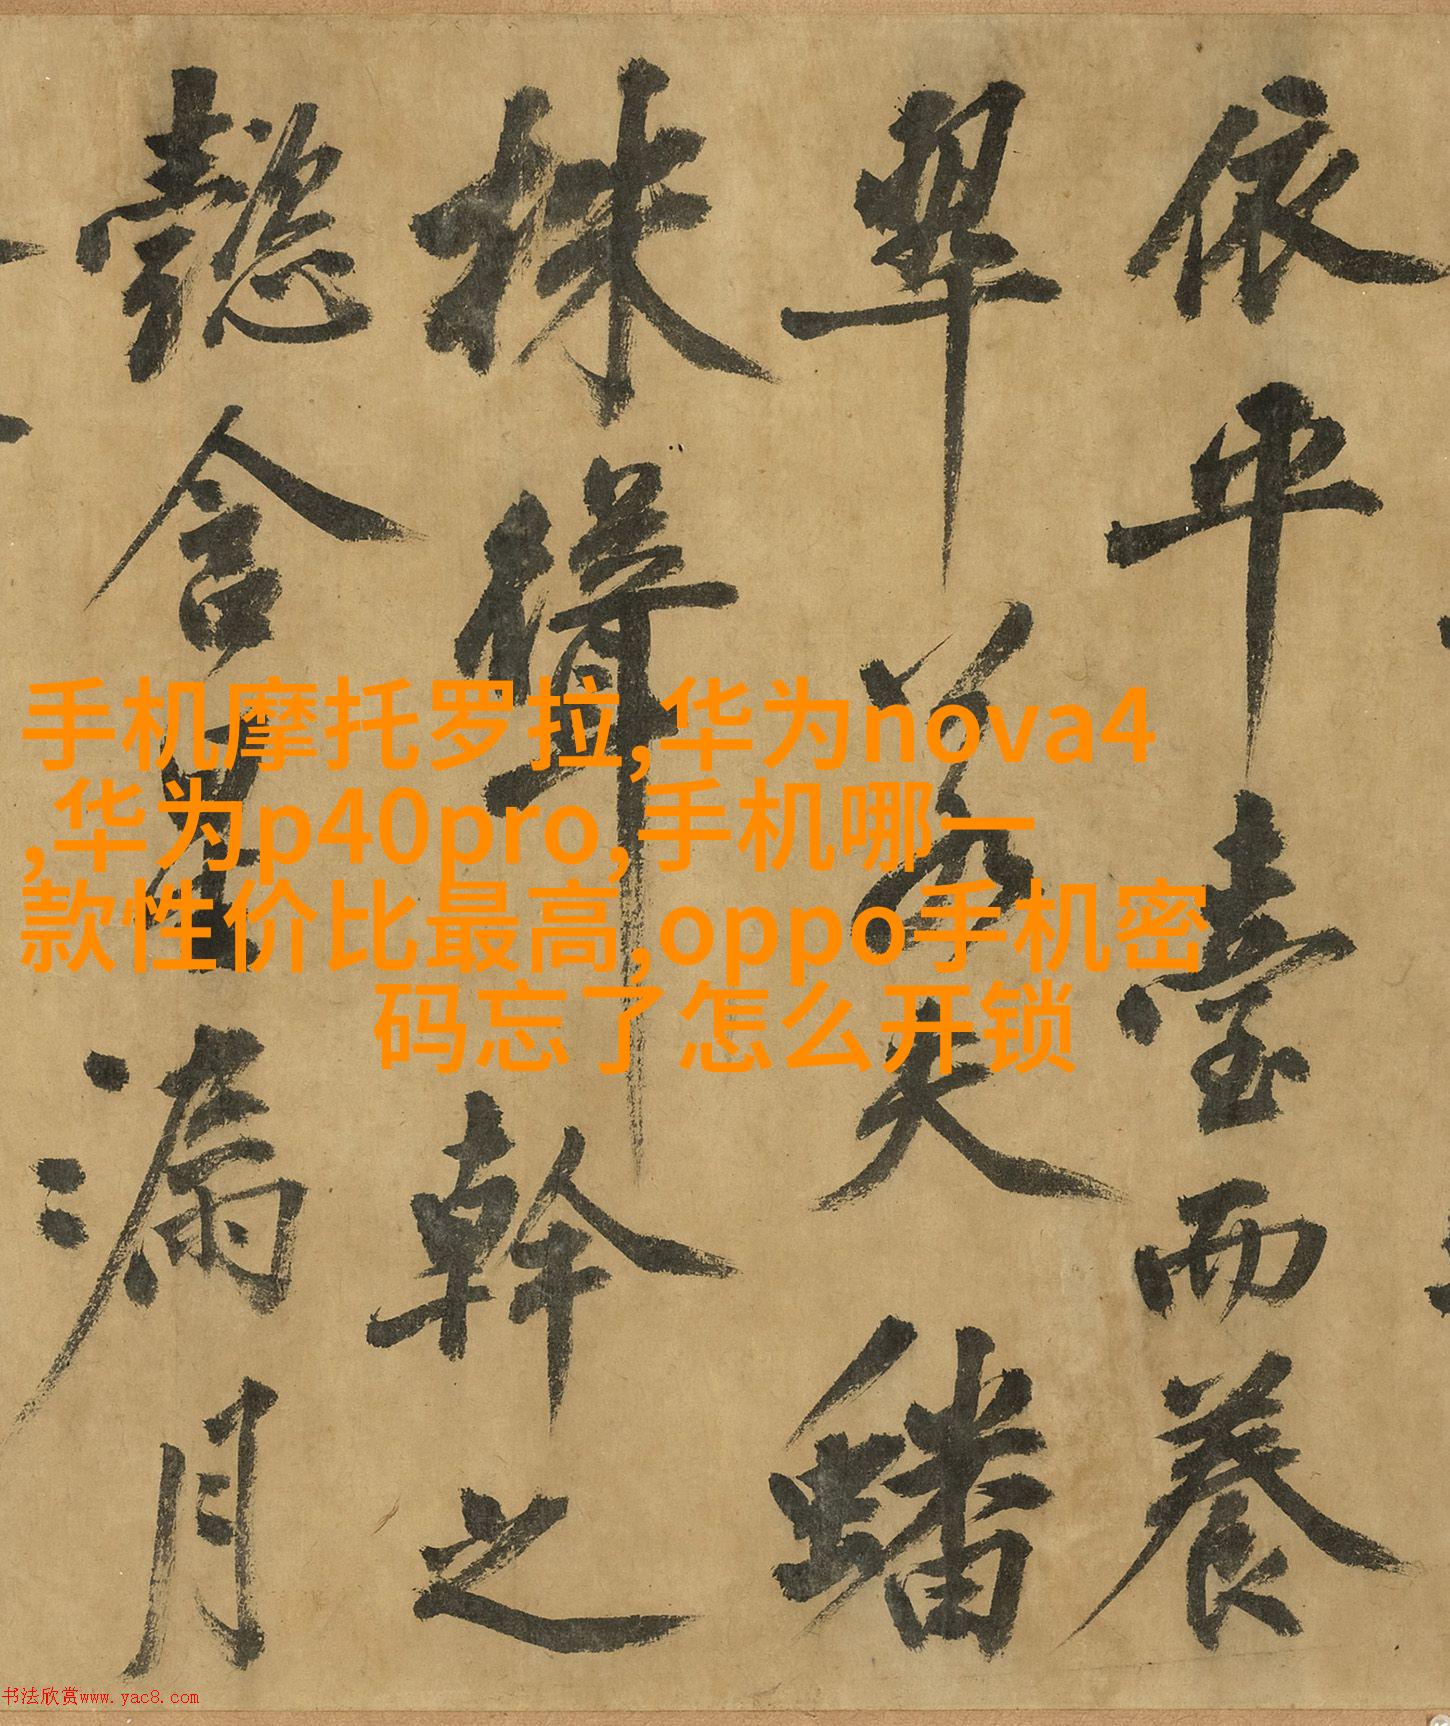 依平臺而養
翠若夫蟠
株聳幹之
懿含星漏月
手机摩托罗拉,华为nova4
,华为p40pro,手机哪一
款性价比最高,oppo手机密
码忘了怎么开锁
书法欣赏www.yac8.com